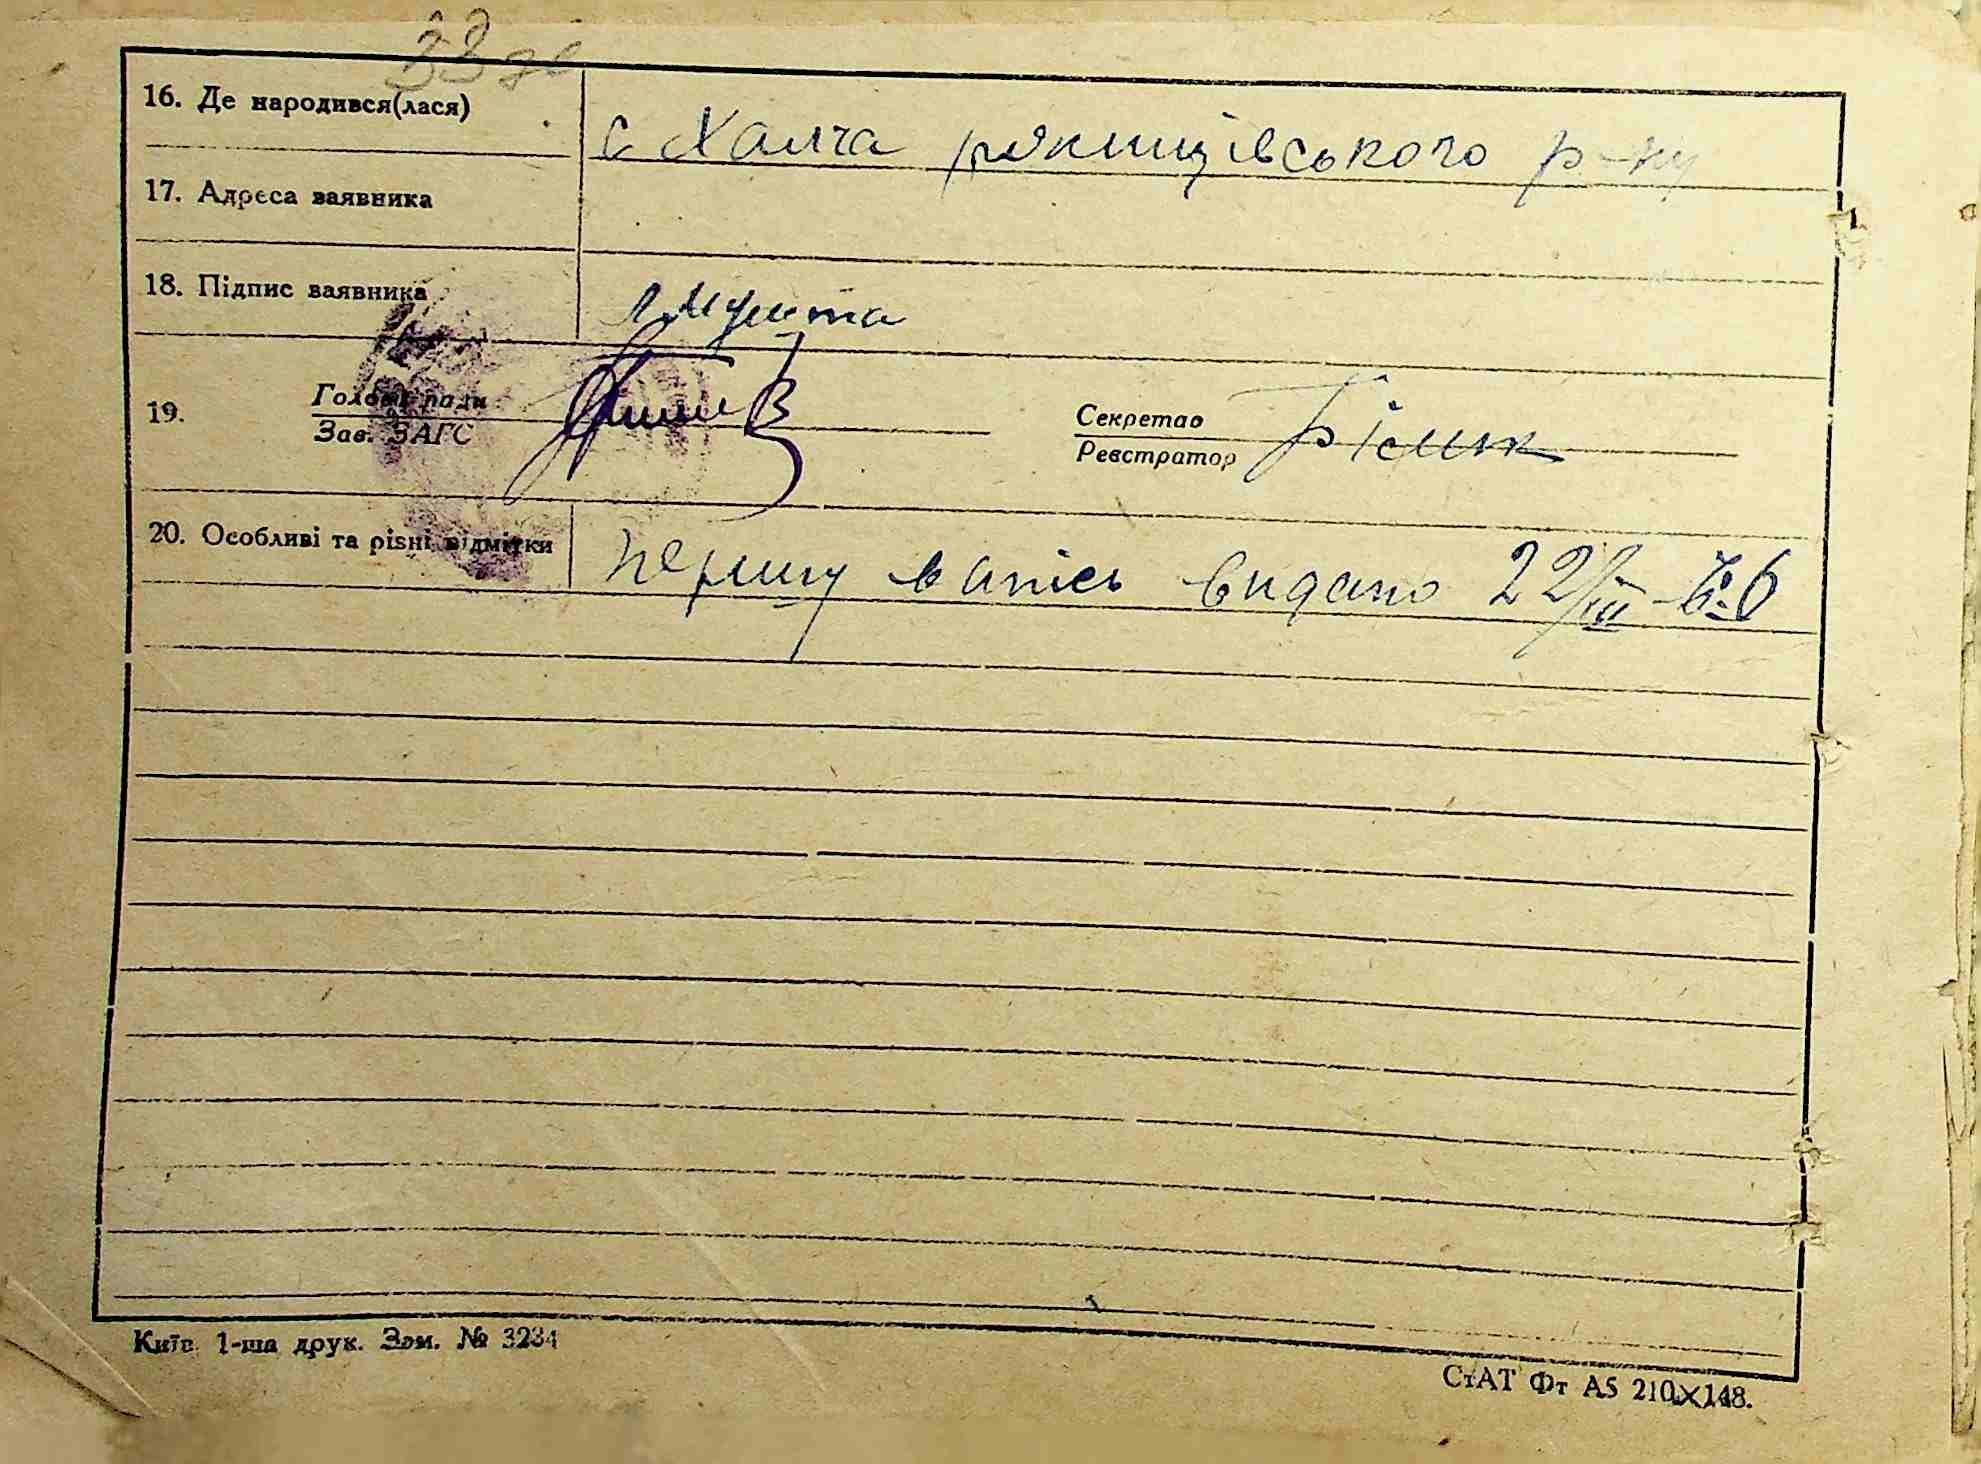 33 зв
16. Де народився(лася)
с Халча ракитнівського р-ну
17. Адреса заявника
18. Підпис заявника
19. Голова ради
Зав. ЗАГС
Секретар
Реєстратор
20. Особливі та різні відмітки
першу видано 22/III
Київ. 1-ша друк. Зам. № 3234
СтАТ Фт А5 210×148.